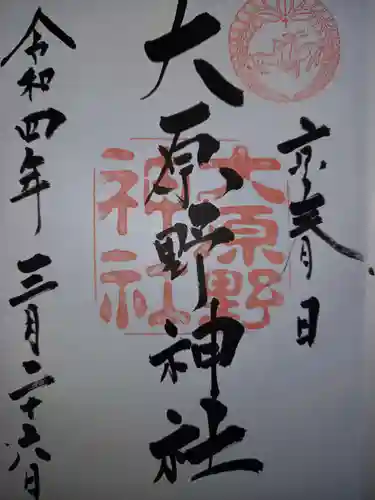 京春日
大原野神社
大原野
神社
令和四年三月二十六日